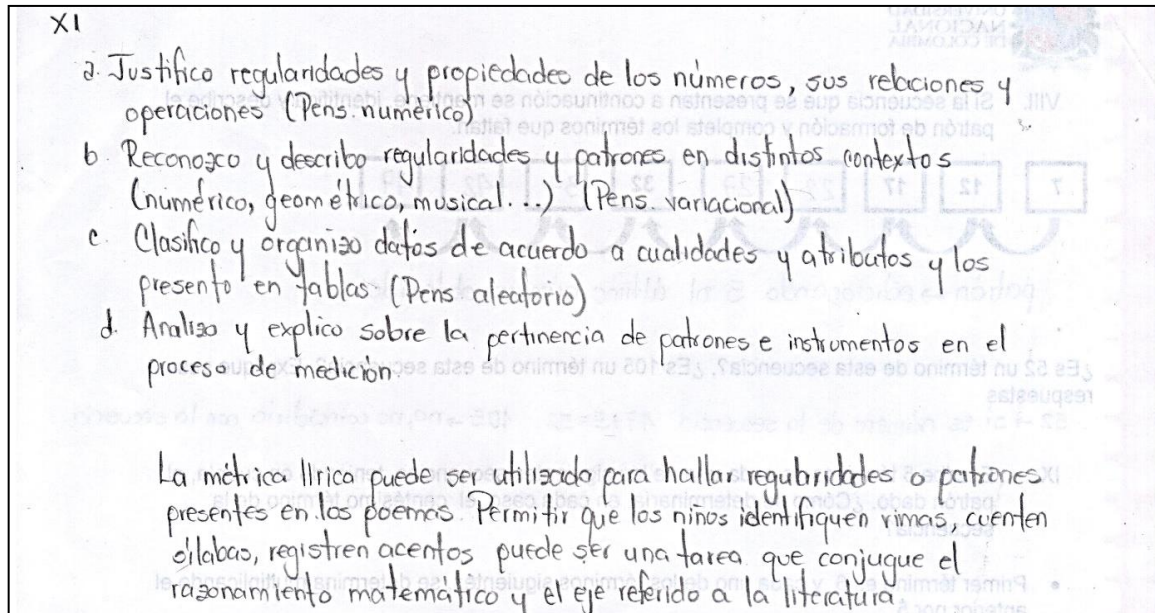 XI
a. Justifico regularidades y propiedades de los números, sus relaciones y
operaciones (Pens. numérico)
b. Reconozco y describo regularidades y patrones en distintos contextos
(numérico, geométrico, musical...) (Pens. variacional)
c. Clasifico y organizo datos de acuerdo a cualidades y atributos y los
presento en tablas (Pens. aleatorio)
d. Analizo y explico sobre la pertinencia de patrones e instrumentos en el
proceso de medición.
La métrica lírica puede ser utilizada para hallar regularidades o patrones
presentes en los poemas. Permitir que los niños identifiquen rimas, cuenten
sílabas, registren acentos puede ser una tarea que conjugue el
razonamiento matemático y el eje referido a la literatura.